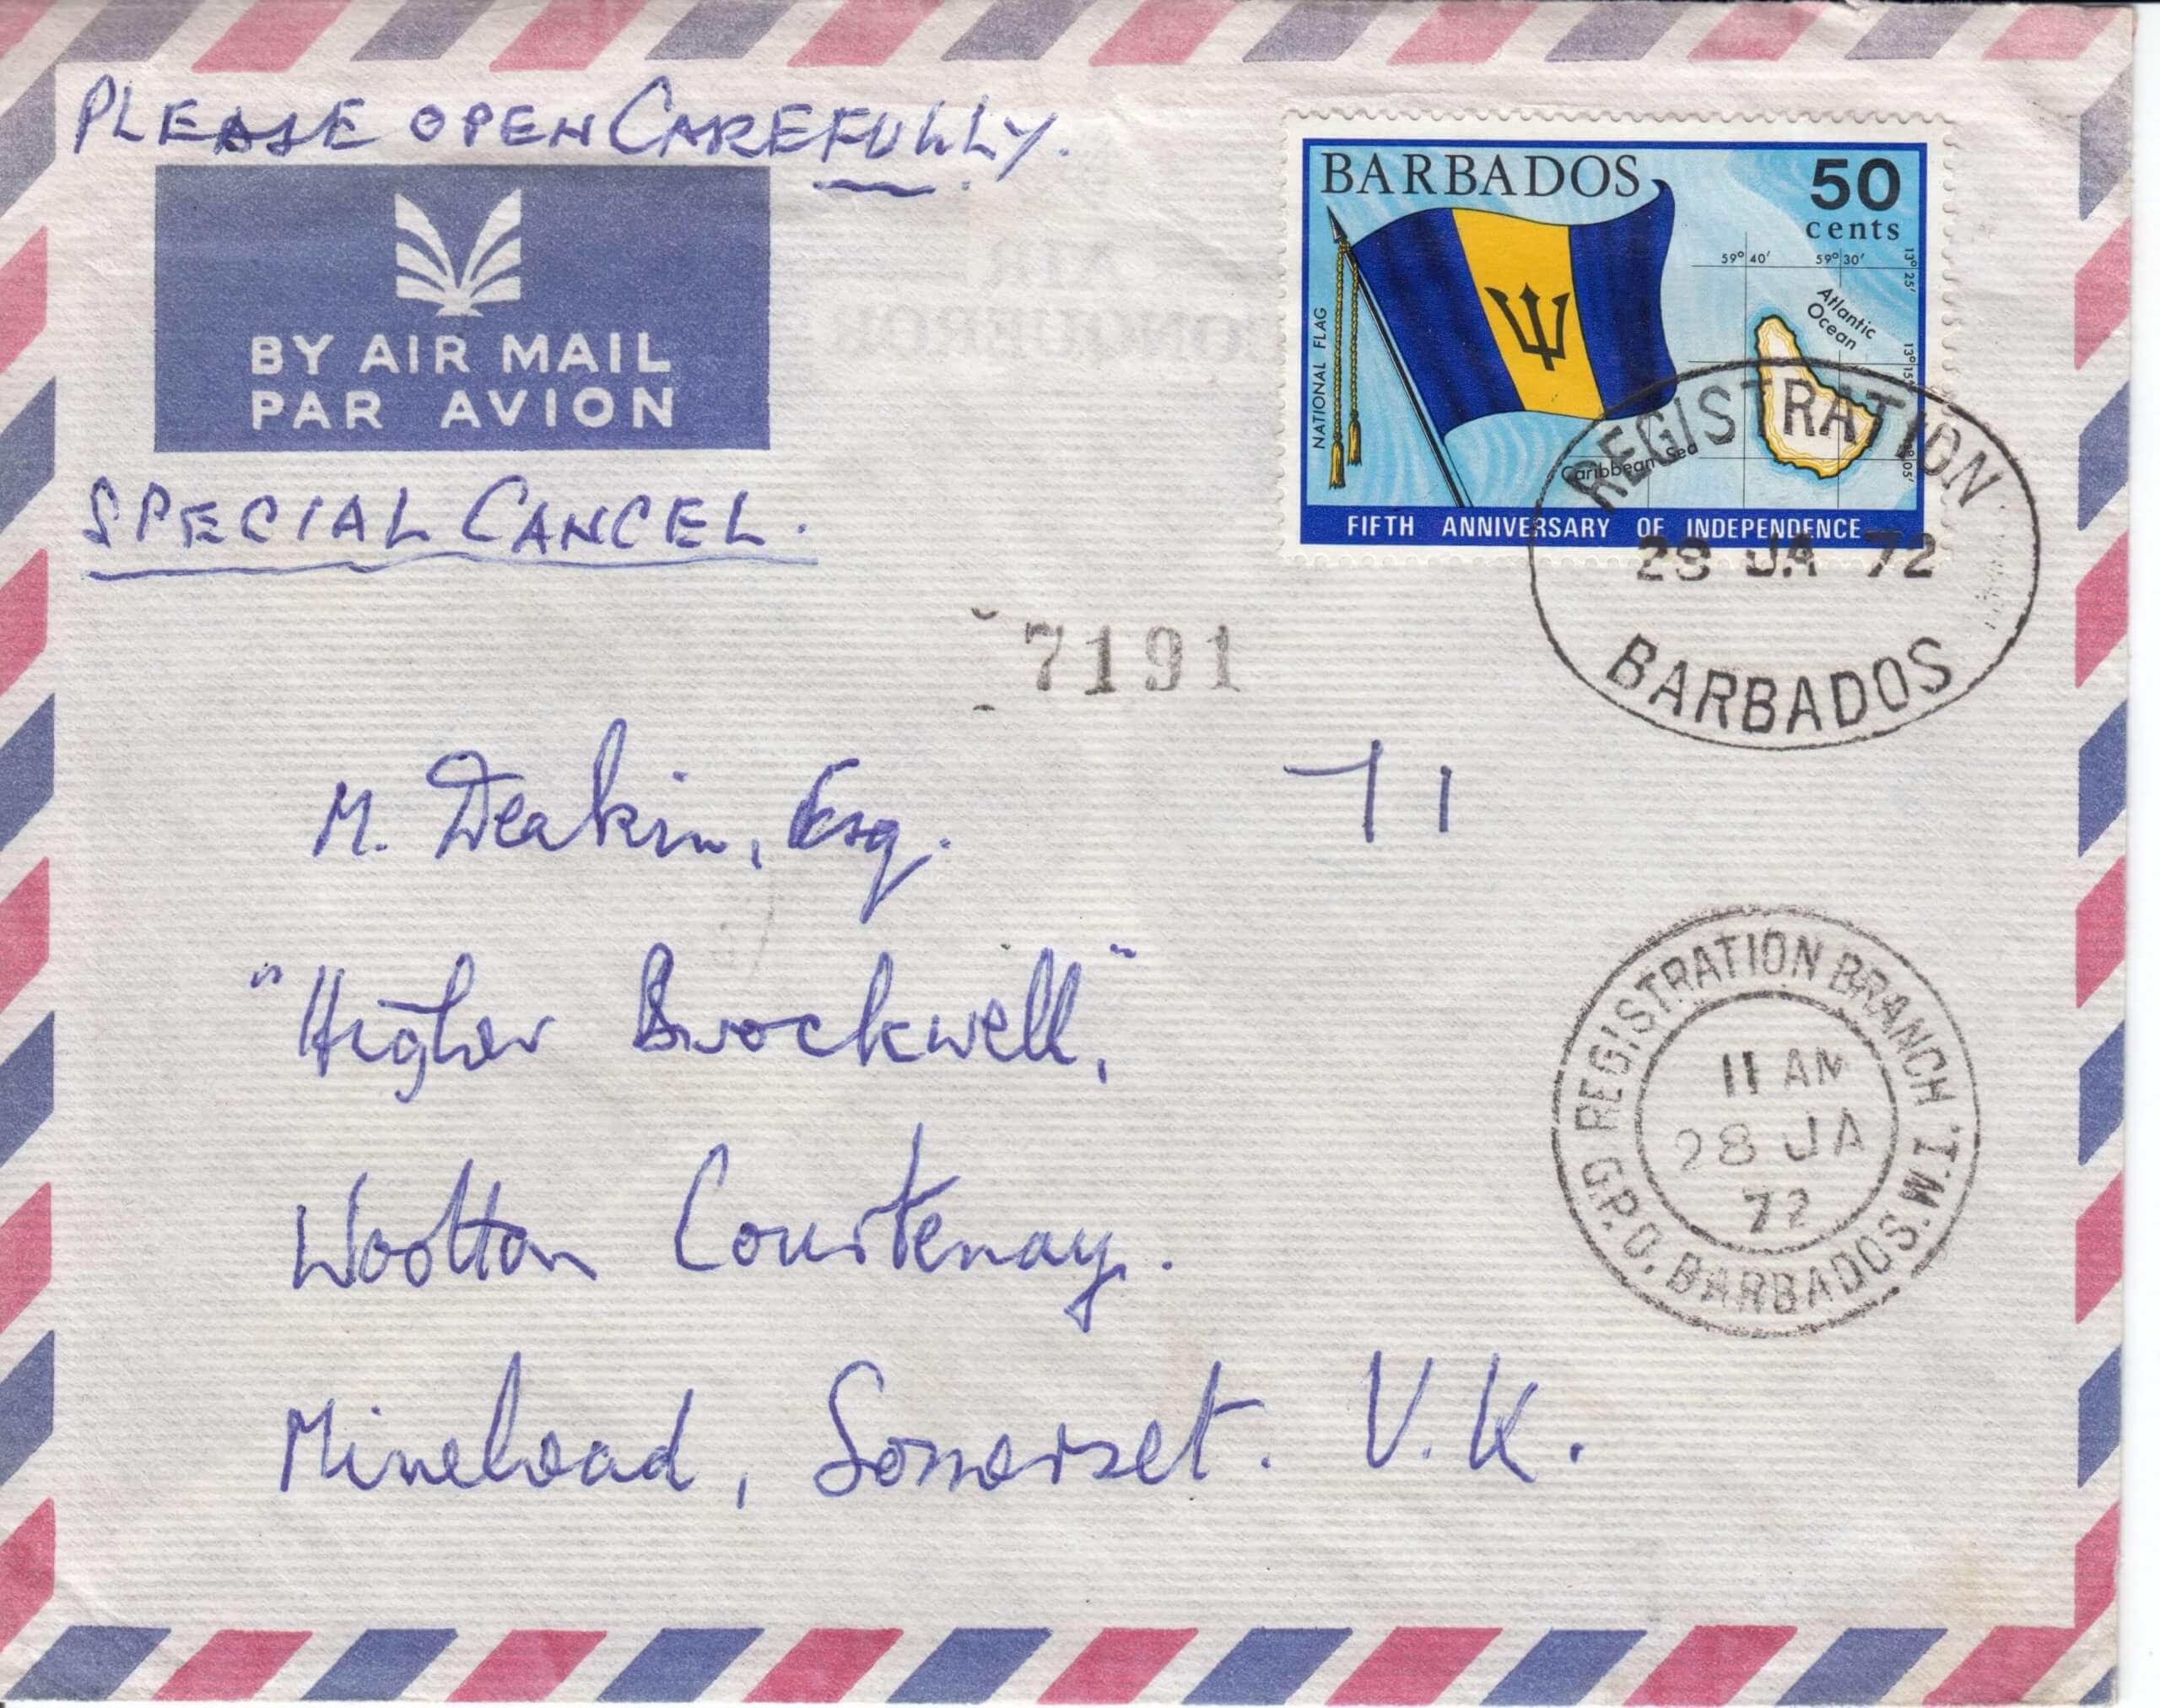 PLEASE OPEN CAREFULLY.
BY AIR MAIL
PAR AVION
SPECIAL CANCEL.
BARBADOS
50
cents
59° 40'
59° 30'
13° 25'
Atlantic
Ocean
13° 15'
NATIONAL FLAG
Caribbean Sea
FIFTH ANNIVERSARY OF INDEPENDENCE
REGISTRATION
28 JA 72
BARBADOS
7191
M. Deakin, Esq.
"Higher Brockwell,"
Wootton Courtenay.
Minehead, Somerset. U.K.
REGISTRATION BRANCH T.M.
11 AM
28 JA
72
G.P.O. BARBADOS